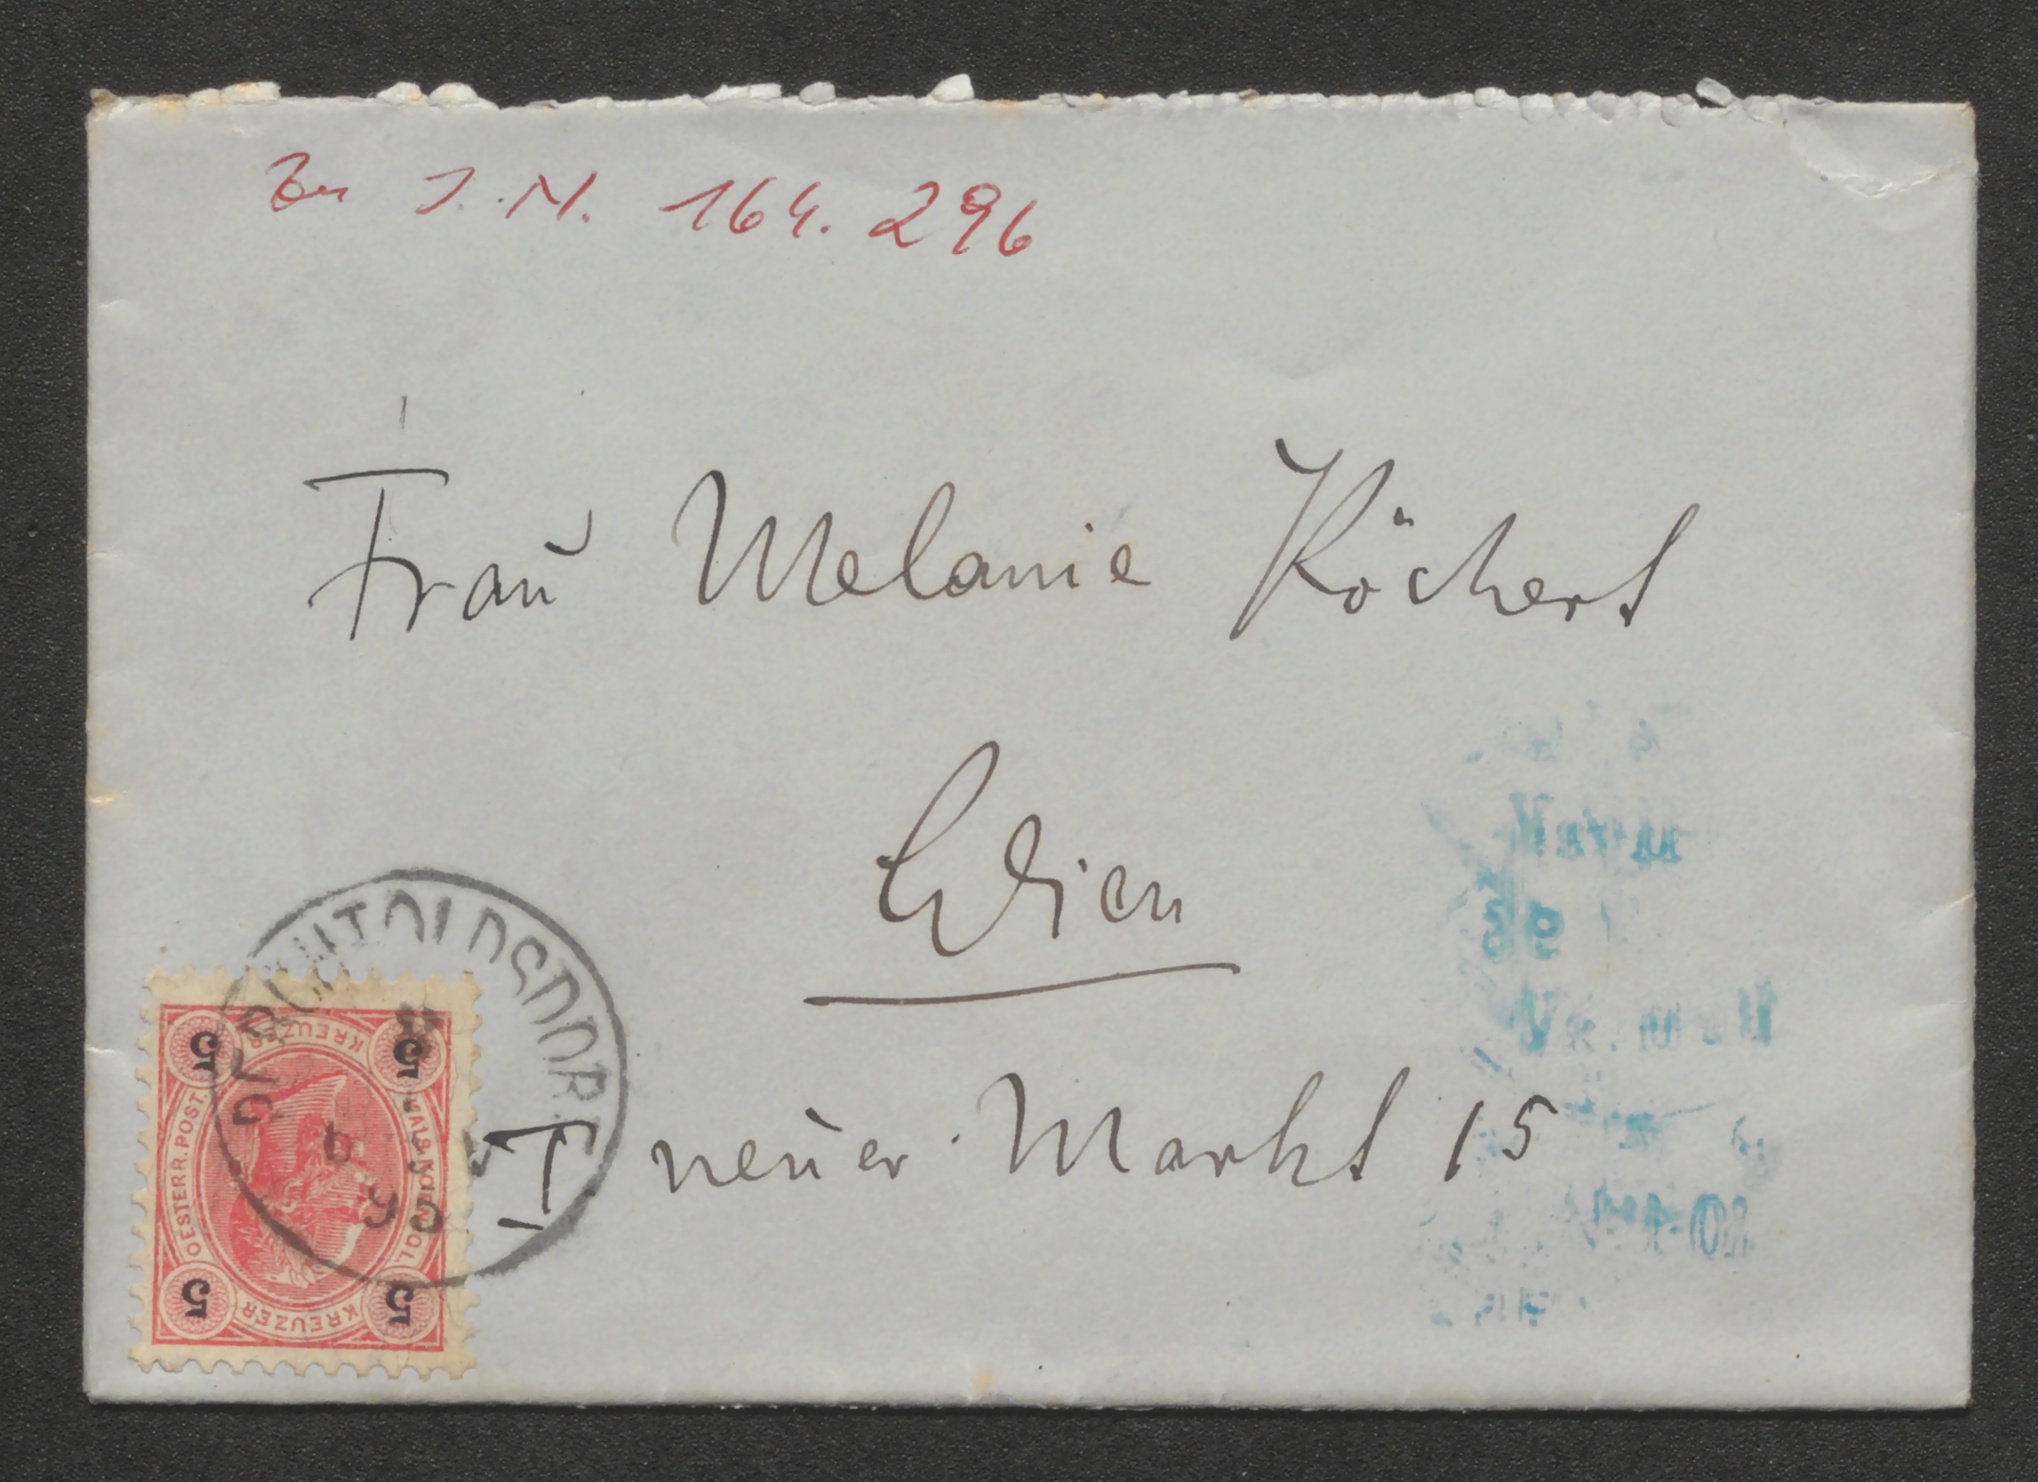 Zu I.N. 164.296
Frau Melanie Köchert
Wien
I neuer Markt 15
PERCHTOLDSDORF
5 KREUZER 5
OESTERR. POST.
5 KREUZER 5